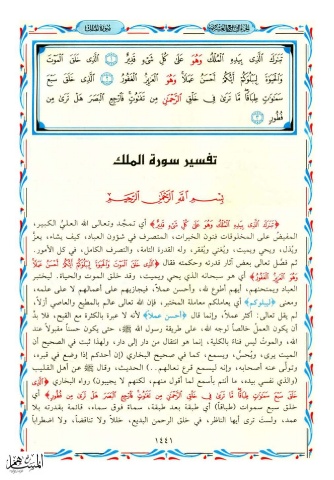 تَبَٰرَكَ ٱلَّذِى بِيَدِهِ ٱلْمُلْكُ وَهُوَ عَلَىٰ كُلِّ شَىْءٍ قَدِيرٌ ۝ ٱلَّذِى خَلَقَ ٱلْمَوْتَ
وَٱلْحَيَوٰةَ لِيَبْلُوَكُمْ أَيُّكُمْ أَحْسَنُ عَمَلًا وَهُوَ ٱلْعَزِيزُ ٱلْغَفُورُ ۝ ٱلَّذِى خَلَقَ سَبْعَ
سَمَٰوَٰتٍ طِبَاقًا مَّا تَرَىٰ فِى خَلْقِ ٱلرَّحْمَٰنِ مِن تَفَٰوُتٍ فَٱرْجِعِ ٱلْبَصَرَ هَلْ تَرَىٰ مِن
فُطُورٍ
تفسير سورة الملك
بِسْمِ ٱللَّهِ ٱلرَّحْمَٰنِ ٱلرَّحِيمِ
﴿تَبَٰرَكَ ٱلَّذِى بِيَدِهِ ٱلْمُلْكُ وَهُوَ عَلَىٰ كُلِّ شَىْءٍ قَدِيرٌ﴾ أي تمجّد وتعالى الله العليّ الكبير،
المفيض على المخلوقات فنون الخيرات، المتصرف في شؤون العباد، كيف يشاء، يعزّ
ويُذل، ويحيي ويميت، ويُغني ويُفقر، وله القدرة التامة، والتصرف الكامل، في كل الأمور.
ثم فصّل تعالى بعض آثار قدرته وحكمته فقال ﴿ٱلَّذِى خَلَقَ ٱلْمَوْتَ وَٱلْحَيَوٰةَ لِيَبْلُوَكُمْ أَيُّكُمْ أَحْسَنُ عَمَلًا
وَهُوَ ٱلْعَزِيزُ ٱلْغَفُورُ﴾ أي هو سبحانه الذي يحيي ويميت، وقد خلق الموت والحياة، ليختبر
العباد ويمتحنهم، أيهم أطوع لله، وأحسن عملاً، فيجازيهم على أعمالهم لا على علمه،
ومعنى ﴿ليبلوكم﴾ أي يعاملكم معاملة المختبر، فإن الله تعالى عالم بالمطيع والعاصي أزلاً،
لم يقل تعالى: أكثر عملاً، وإنما قال ﴿أحسن عملاً﴾ لأنه لا عبرة بالكثرة مع القبح، فلا بدّ
أن يكون العملُ خالصاً لوجه الله، على طريقة رسول الله ﷺ، حتى يكون حسناً مقبولاً عند
الله، والموتُ ليس فناءً بالكلية، إنما هو انتقال من دار إلى دار، ولهذا ثبت في الصحيح أن
الميت يرى، ويُحسُّ، ويسمع، كما في صحيح البخاري (إن أحدكم إذا وضع في قبره،
وتولَّى عنه أصحابه، وإنه ليسمع قرع نعالهم..) الحديث، وقال ﷺ عن أهل القليب
(والذي نفسي بيده، ما أنتم بأسمع لما أقول منهم، لكنهم لا يجيبون) رواه البخاري ﴿ٱلَّذِى
خَلَقَ سَبْعَ سَمَٰوَٰتٍ طِبَاقًا مَّا تَرَىٰ فِى خَلْقِ ٱلرَّحْمَٰنِ مِن تَفَٰوُتٍ فَٱرْجِعِ ٱلْبَصَرَ هَلْ تَرَىٰ مِن فُطُورٍ﴾ أي
خلق سبع سموات (طباقاً) أي طبقة بعد طبقة، سماء فوق سماء، قائمة بقدرته بلا
عمد، ولست ترى أيها الناظر، في خلق الرحمن البديع، خللاً ولا تناقضاً، ولا اضطراباً
١٤٤١